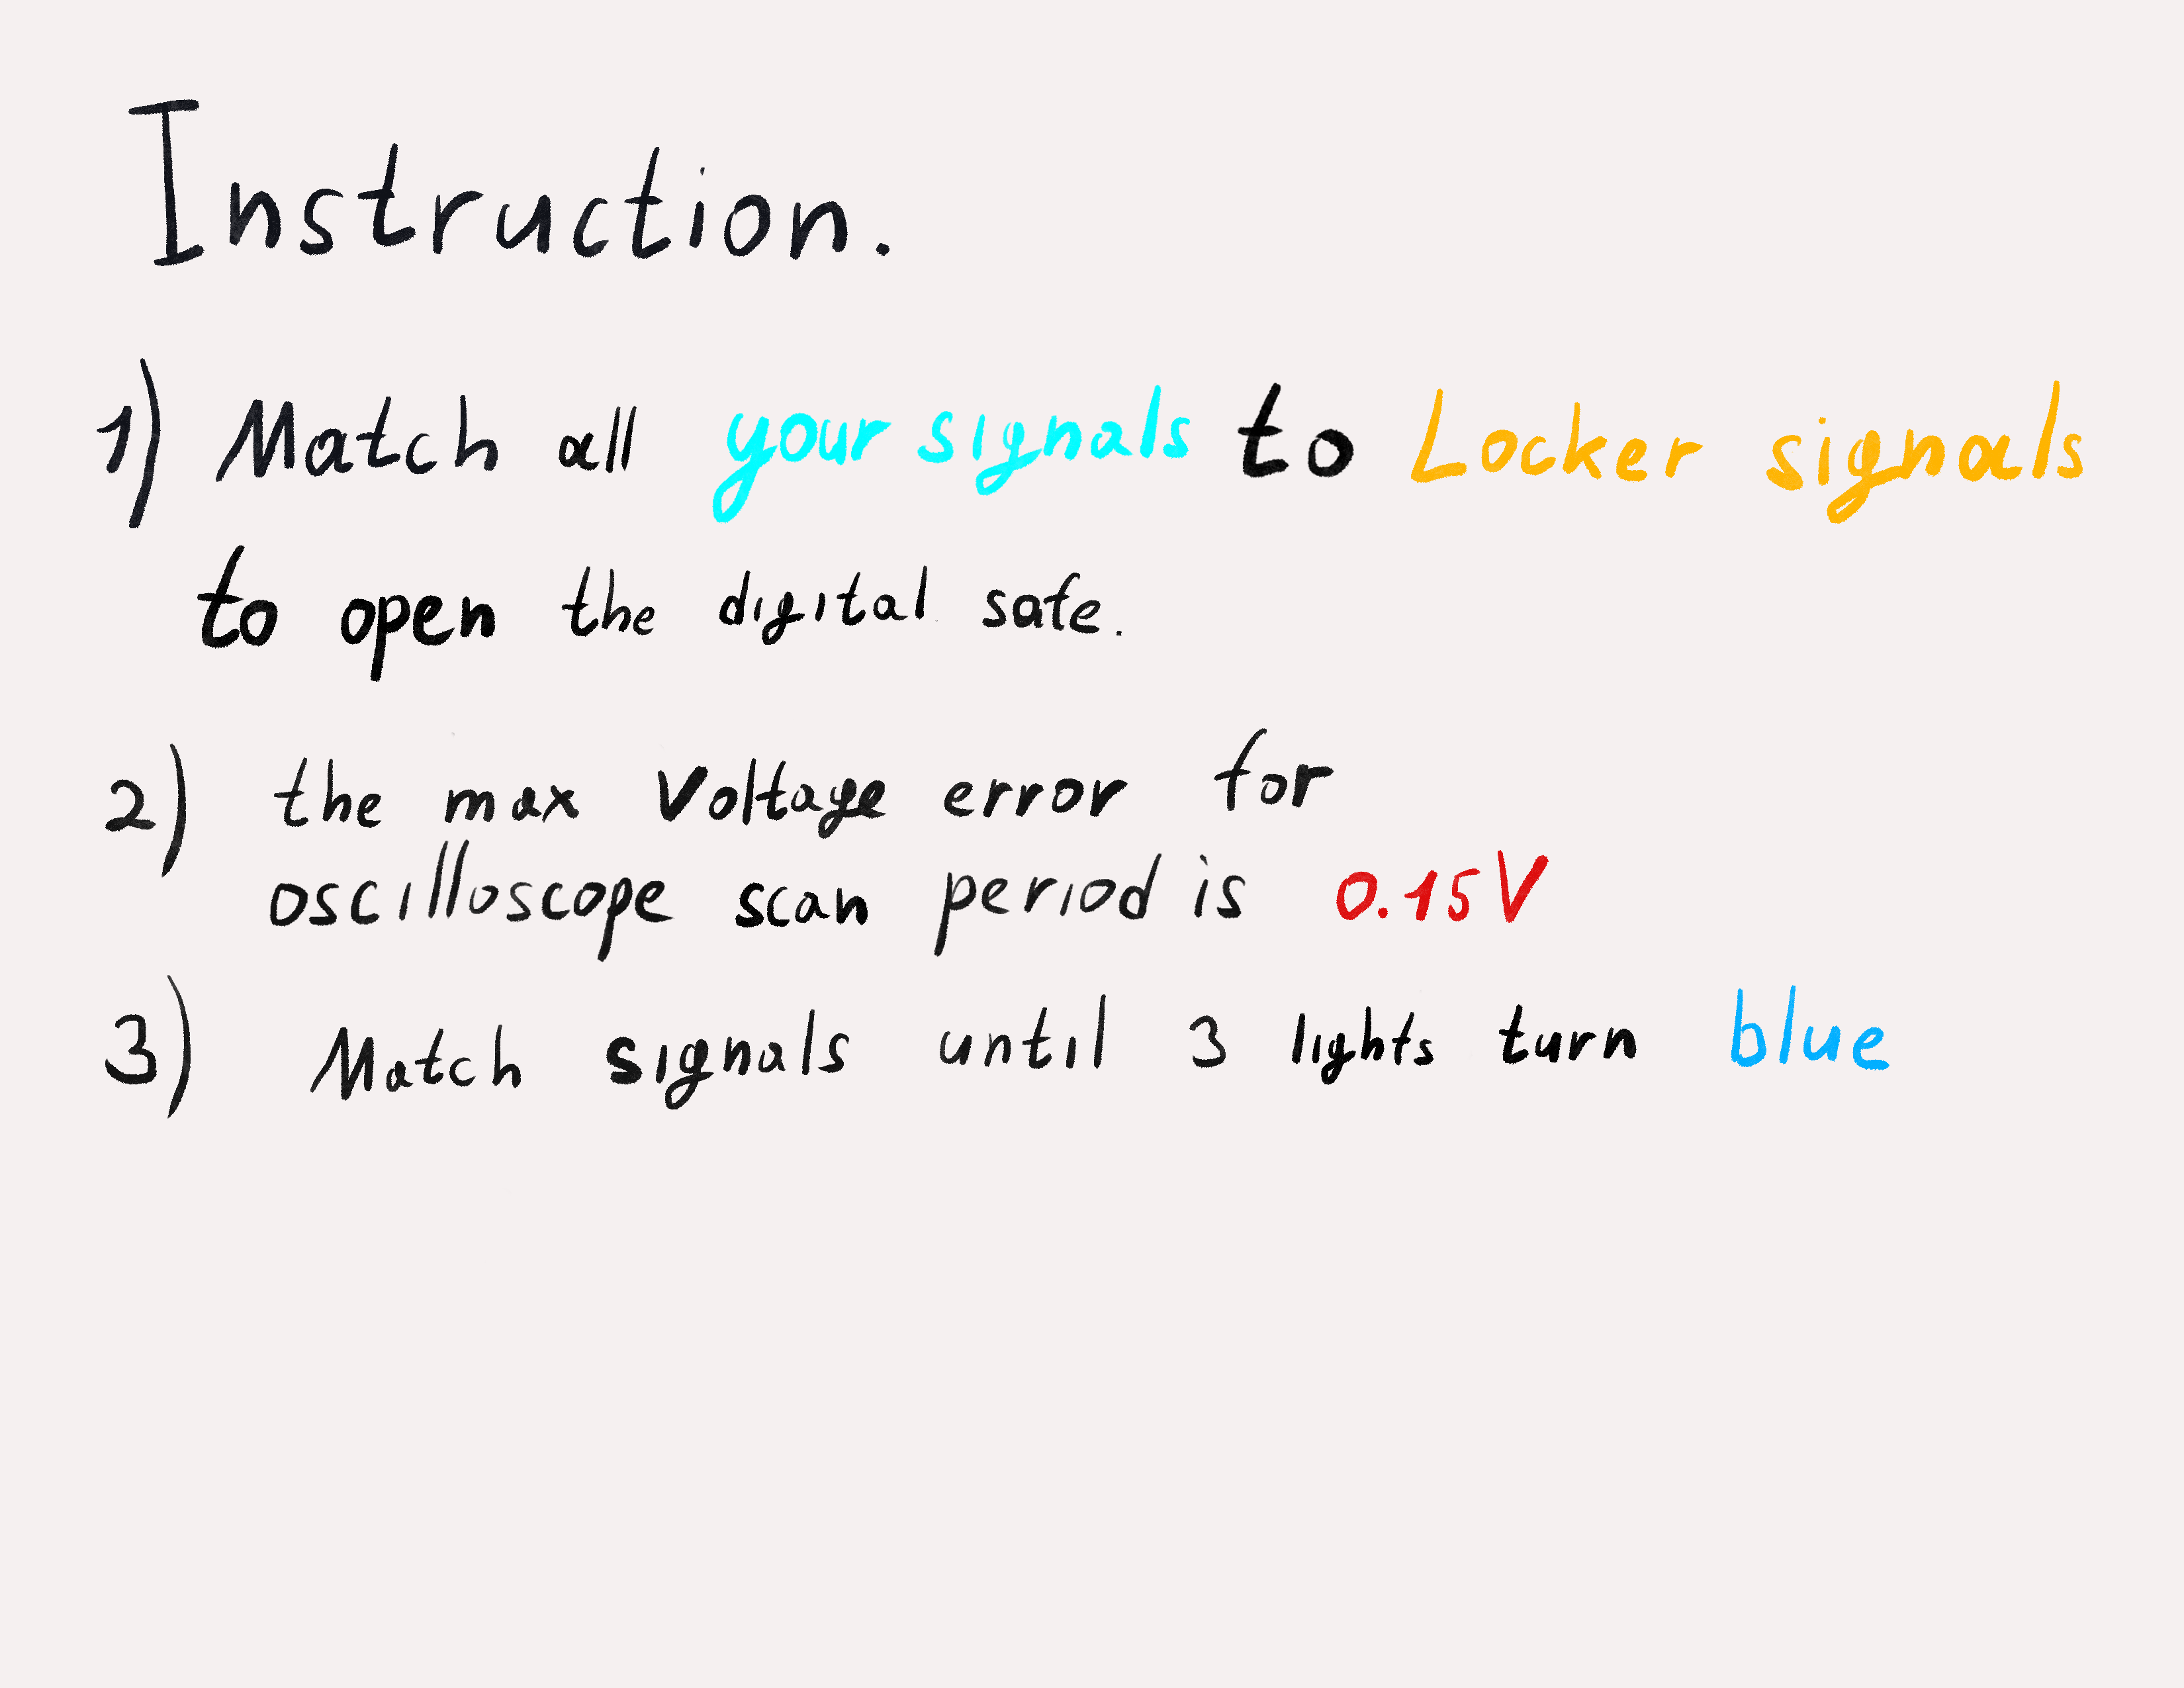 Instruction.
1) Match all your signals to Locker signals
to open the digital safe.
2) the max Voltage error for
oscilloscope scan period is 0.15V
3) Match signals until 3 lights turn blue